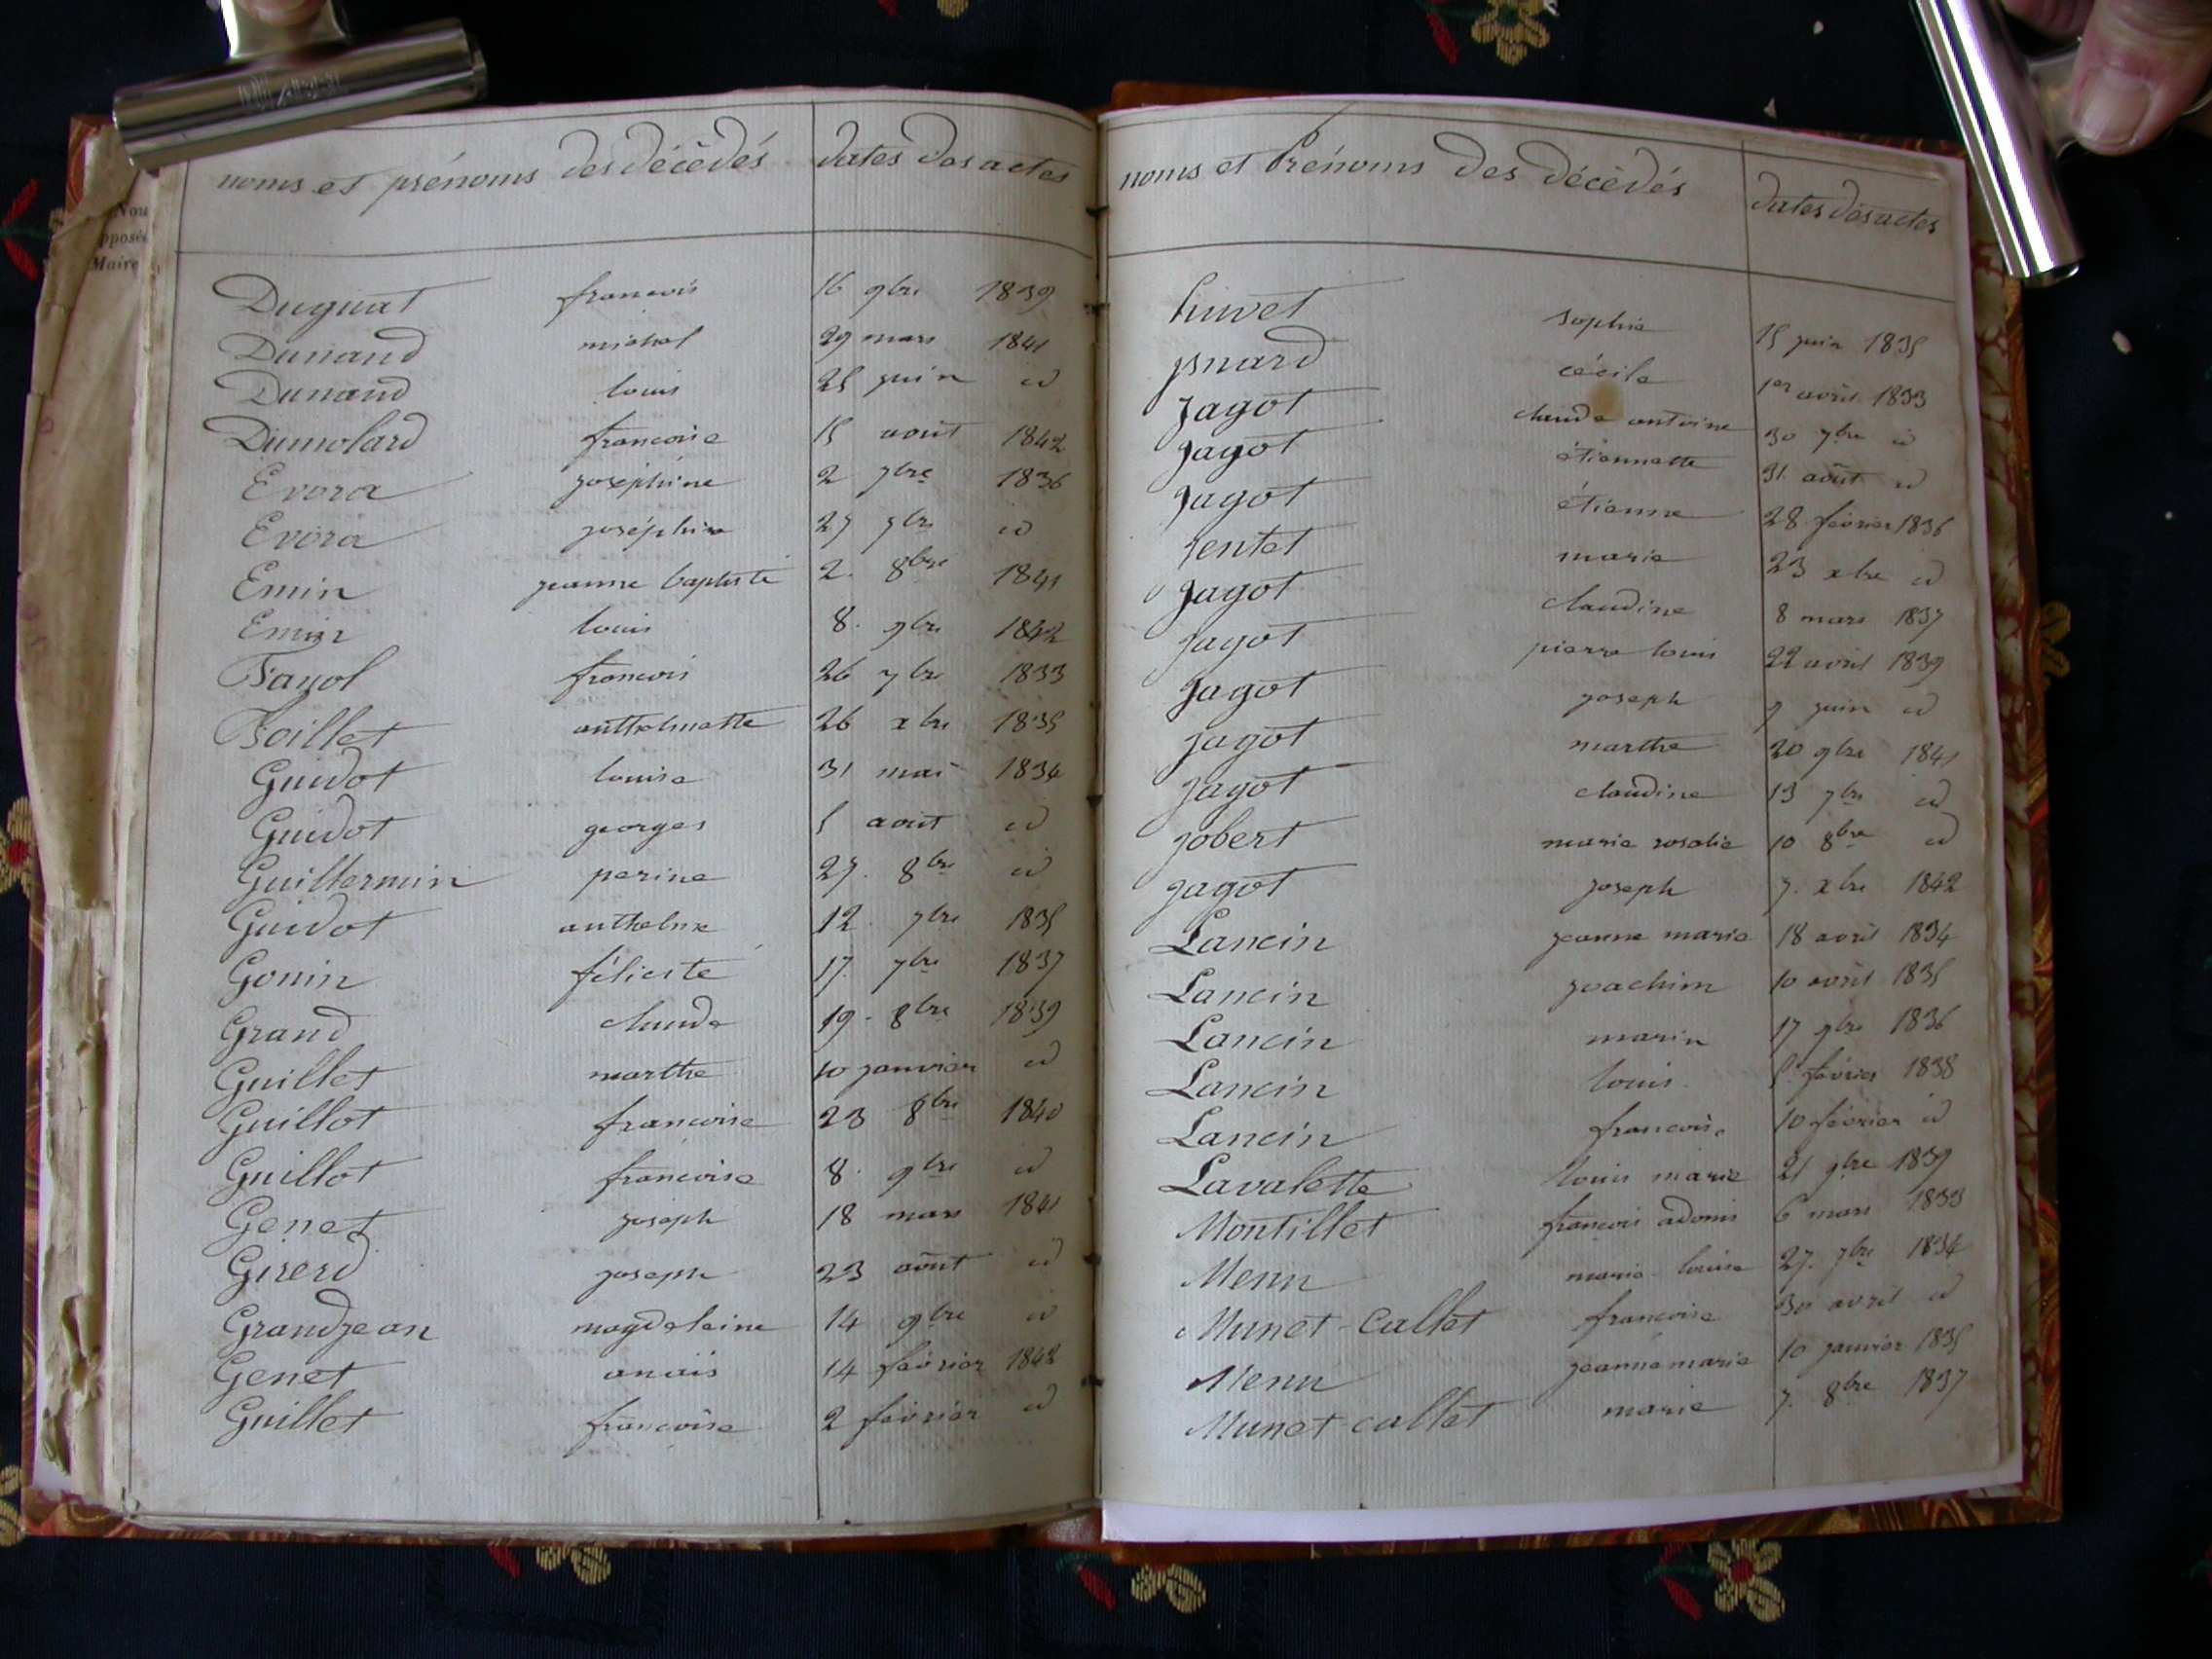 Nou
pposé
Maire
noms et prénoms des décédés dates des actes
Duguat francois 16 9bre 1839
Dunand michel 29 mars 1841
Dunand louis 25 juin id
Dumolard francoise 15 août 1842
Evora joséphine 2 7bre 1836
Evora joséphine 27 7bre id
Emin jeanne baptiste 2. 8bre 1841
Emin louis 8. 9bre 1842
Fayol francois 26 7bre 1833
Foillet anthelmette 26 xbre 1835
Guidot louise 31 mai 1834
Guidot georges 5 août id
Guillermin perine 27. 8bre id
Guidot anthelme 12. 7bre 1835
Gonin félicité 17. 7bre 1837
Grand claude 19. 8bre 1839
Guillet marthe 10 janvier id
Guillot francoise 23 8bre 1840
Guillot francoise 8. 9bre id
Genet joseph 18 mars 1841
Girerd joseph 23 août id
Grandjean magdeleine 14 9bre id
Genet anaïs 14 février 1842
Guillet francoise 2 février id
noms et Prénoms des décédés dates des actes
huvet sophie 15 juin 1835
jsnard cécile 1er avril 1833
Jagot claude antoine 30 7bre id
Jagot étiennette 31 août id
Jagot étienne 28 février 1836
Jentet marie 23 xbre id
Jagot claudine 8 mars 1837
Jagot pierre louis 22 avril 1839
Jagot joseph 9 juin id
Jagot marthe 20 9bre 1841
Jagot claudine 13 7bre id
Jobert marie rosalie 10 8bre id
Jagot joseph 7. xbre 1842
Lancin jeanne marie 18 avril 1834
Lancin joachim 10 avril 1835
Lancin marin 17 9bre 1836
Lancin louis 5 février 1838
Lancin francoise 10 février id
Lavalette louis marie 21 9bre 1839
Montillet francois adonis 6 mars 1833
Menu marie louise 27. 7bre 1834
Munet-Callet francoise 30 avril id
Menu jeanne marie 10 janvier 1835
Munet-callet marie 7. 8bre 1837